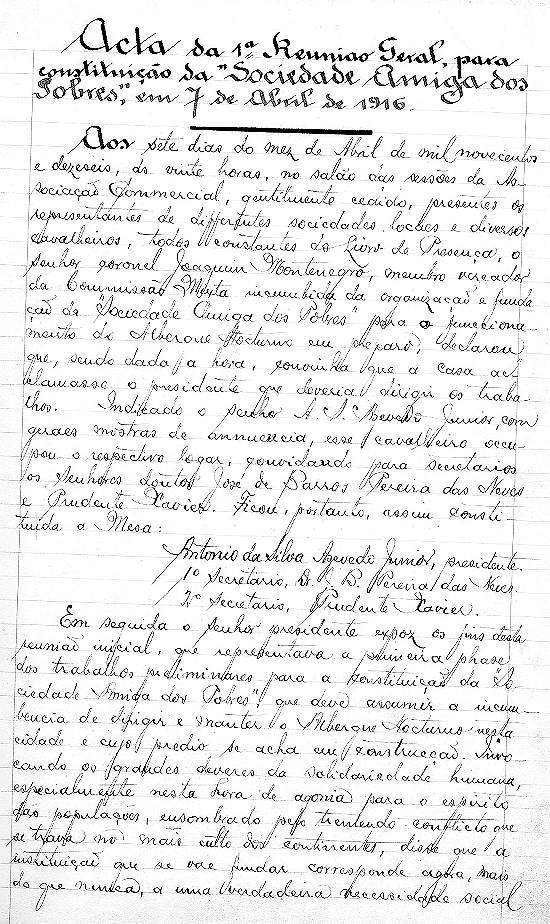 Acta da 1ª Reunião Geral, para
constituição da "Sociedade Amiga dos
Pobres", em 7 de Abril de 1916.
Aos sete dias do mez de Abril de mil novecentos
e dezeseis, ás vinte horas, no salão das sessões da As-
sociação Commercial, gentilmente cedido, presentes os
representantes de differentes sociedades locaes e diversos
cavalheiros, todos constantes do Livro de Presença, o
senhor coronel Joaquim Montenegro, membro vereador
da Commissão Mixta incumbida da organização e funda-
ção da "Sociedade Amiga dos Pobres" para o funcciona-
mento do Albergue Nocturno em preparo, declarou
que, sendo dada a hora, convinha que a casa ac-
clamasse o presidente que deveria dirigir os traba-
lhos. Indicado o senhor A. S. Azevedo Junior, com
geraes mostras de annuencia, esse cavalheiro occu-
pou o respectivo logar, convidando para secretarios
os senhores doutor José de Barros Pereira das Neves
e Prudente Xavier. Ficou, portanto, assim consti-
tuida a Mesa:
Antonio da Silva Azevedo Junior, presidente.
1º Secretario, B. Pereira das Neves.
2º Secretario, Prudente Xavier.
Em seguida o senhor presidente expoz os fins desta
reunião inicial, que representava a primeira phase
dos trabalhos preliminares para a constituição da "So-
ciedade Amiga dos Pobres", que deve assumir a incum-
bencia de dirigir e manter o Albergue Nocturno nesta
cidade e cujo predio se acha em construcção. Invo-
cando os grandes deveres da solidariedade humana,
especialmente nesta hora de agonia para o espirito
das populações, ensombrado pelo tremendo conflicto que
se trava no mais culto dos continentes, disse que a
instituição que se vae fundar corresponde agora, mais
do que nunca, a uma verdadeira necessidade social